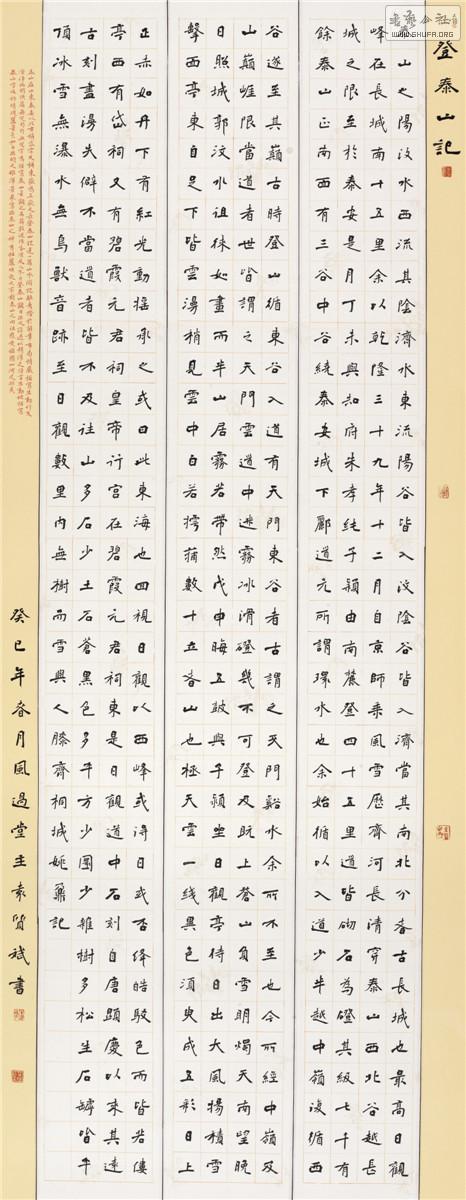 登泰山記
山之陽汶水西流其陰濟水東流陽谷皆入汶陰谷皆入濟當其南北分者古長城也最高日觀
峰在長城南十五里余以乾隆三十九年十二月自京師乘風雪歷齊河長清穿泰山西北谷越長
城之限至於泰安是月丁未與知府朱孝純子潁由南麓登四十五里道皆砌石為磴其級七千有
餘泰山正南面有三谷中谷繞泰安城下酈道元所謂環水也余始循以入道少半越中嶺復循西
谷遂至其巔古時登山循東谷入道有天門東谷者古謂之天門谿水余所不至也今所經中嶺及
山巔崖限當道者世皆謂之天門雲道中迷霧冰滑磴幾不可登及既上蒼山負雪明燭天南望晚
日照城郭汶水徂徠如畫而半山居霧若帶然戊申晦五鼓與子潁坐日觀亭待日出大風揚積雪
擊面亭東自足下皆雲漫稍見雲中白若摴蒱數十立者山也極天雲一線異色須臾成五彩日上
正赤如丹下有紅光動搖承之或曰此東海也回視日觀以西峰或得日或否絳皓駁色而皆若僂
亭西有岱祠又有碧霞元君祠皇帝行宮在碧霞元君祠東是日觀道中石刻自唐顯慶以來其遠
古刻盡漫失僻不當道者皆不及往山多石少土石蒼黑色多平方少圜少雜樹多松生石罅皆平
頂冰雪無瀑水無鳥獸音跡至日觀數里內無樹而雪與人膝齊桐城姚鼐記
癸巳年春月風過堂主袁質斌書
WWW.SHUFA.ORG